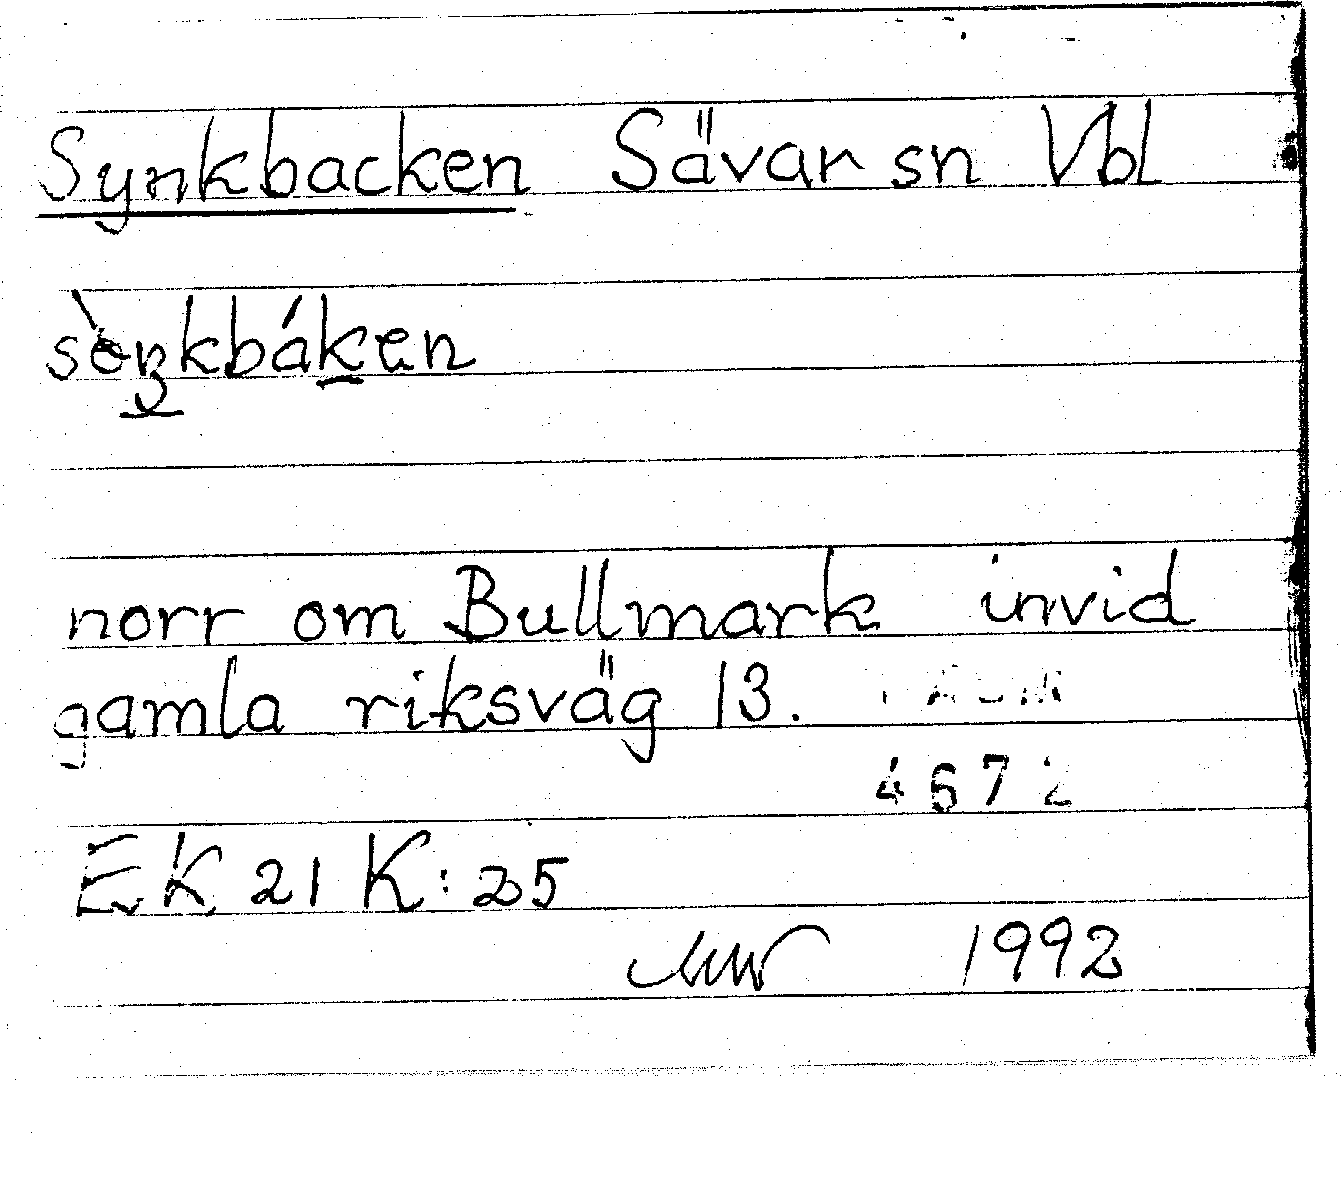 Synkbacken Sävar sn Vbl
sɵ̀ŋkbáken
norr om Bullmark invid
gamla riksväg 13.
4672
EK 21 K:25
1992